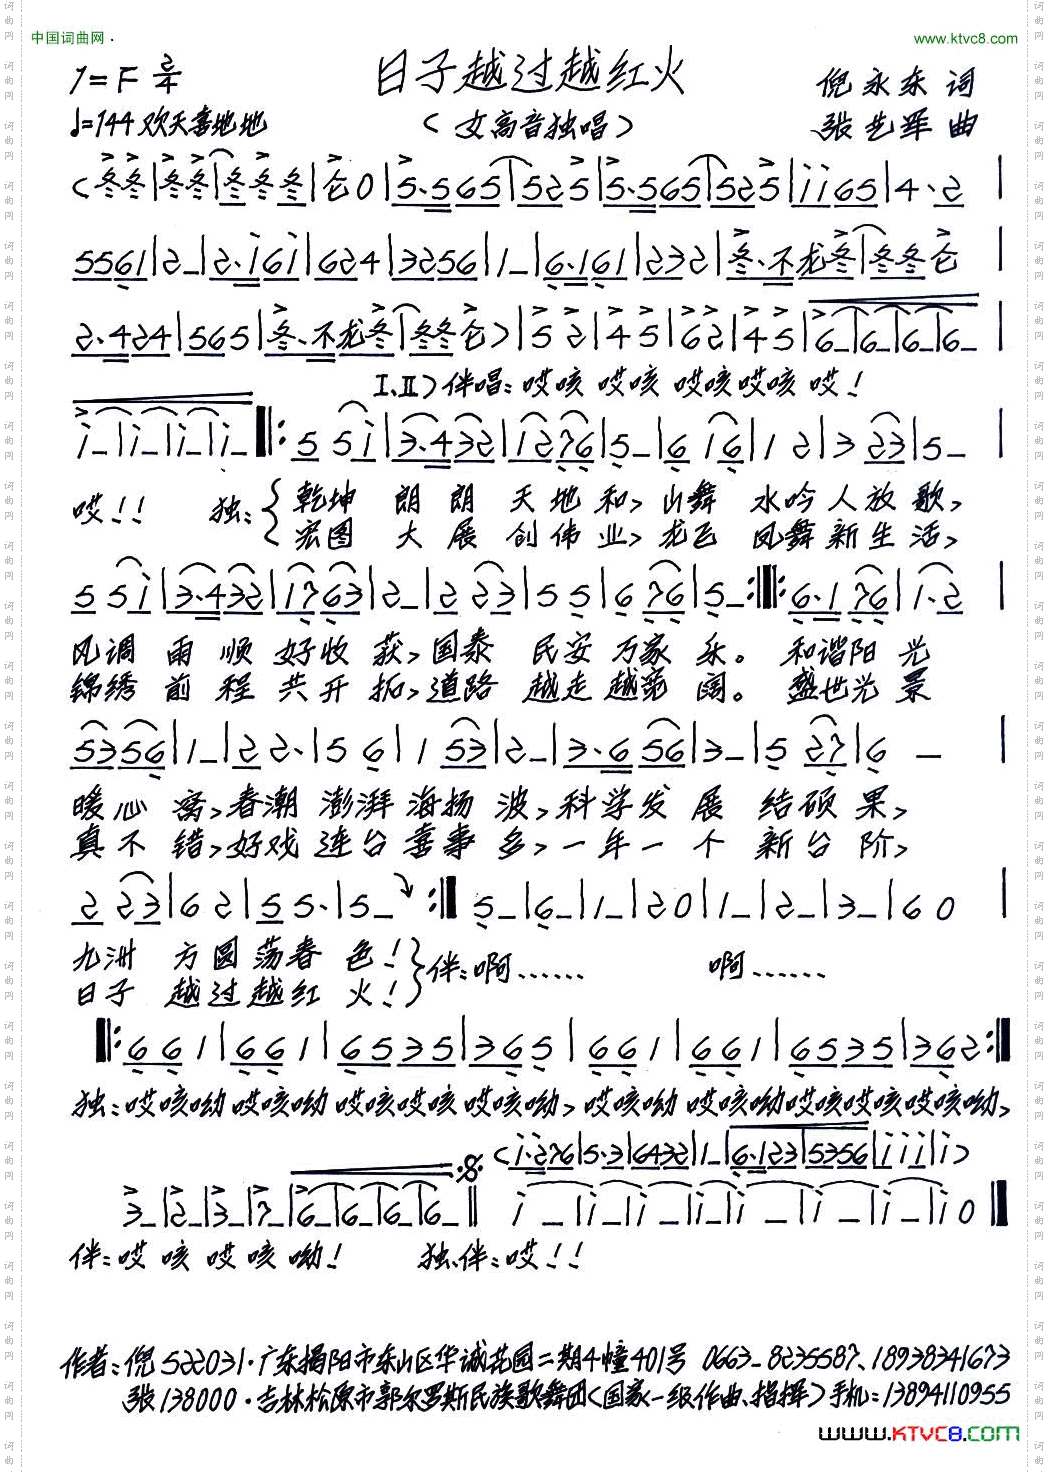 中国词曲网·
www.ktvc8.com
1=F 2/4
日子越过越红火
倪永东 词
♩=144 欢天喜地地
(女高音独唱)
张艺军 曲
(冬冬|冬冬|冬冬冬|仑0|5·565|525|5·565|525|i i65|4·2|
5561|2_|2·i6i|624|3256|1_|6·161|232|冬·不龙冬|冬冬仑|
2·424|565|冬·不龙冬|冬冬仑)|5 2|4 5|6 2|4 5|6_|6_|6_|6_|
I.II)伴唱:哎咳 哎咳 哎咳哎咳 哎!
i_|i_|i_|i_‖:5 5i|3·432|1276|5_|6 16|1 2|3 23|5_|
哎!! 独:{乾坤 朗朗 天地和,山舞 水吟人放歌,
宏图 大展 创伟业,龙飞 凤舞新生活,
5 5i|3·432|1763|2_|2 23|5 5|6 76|5_:‖:6·1 76|1·2|
风调 雨顺 好收获,国泰 民安 万家乐。 和谐阳光
锦绣 前程 共开拓,道路 越走越宽阔。 盛世光景
5356|1_|2 2·|5 6|1 53|2_|3·6 56|3_|5 27|6 —
暖心窝,春潮 澎湃 海扬波,科学发展 结硕果,
真不错,好戏 连台 喜事多,一年一个 新台阶,
2 23|6 2|5 5·|5_:‖5_|6_|1_|20|1_|2_|3_|60|
九洲 方圆荡春色!}伴:啊…… 啊……
日子 越过越红火!
‖:661|661|6535|365|661|661|6535|362:‖
独:哎咳呦 哎咳呦 哎咳哎咳 哎咳呦,哎咳呦 哎咳呦哎咳哎咳哎咳呦,
(i·276|5·3|6432|1_|6·123|5356|i i i|i)
3_|2_|3_|7_|6_|6_|6_|6_‖i_|i_|i_|i_|i_|i_|i_|i0‖
伴:哎咳哎咳呦! 独、伴:哎!!
作者:倪 522031·广东揭阳市东山区华诚花园二期4幢401号 0663-8235587、18938341673
张 138000·吉林松原市郭尔罗斯民族歌舞团(国家一级作曲、指挥)手机:13894110955
www.KTVC8.com